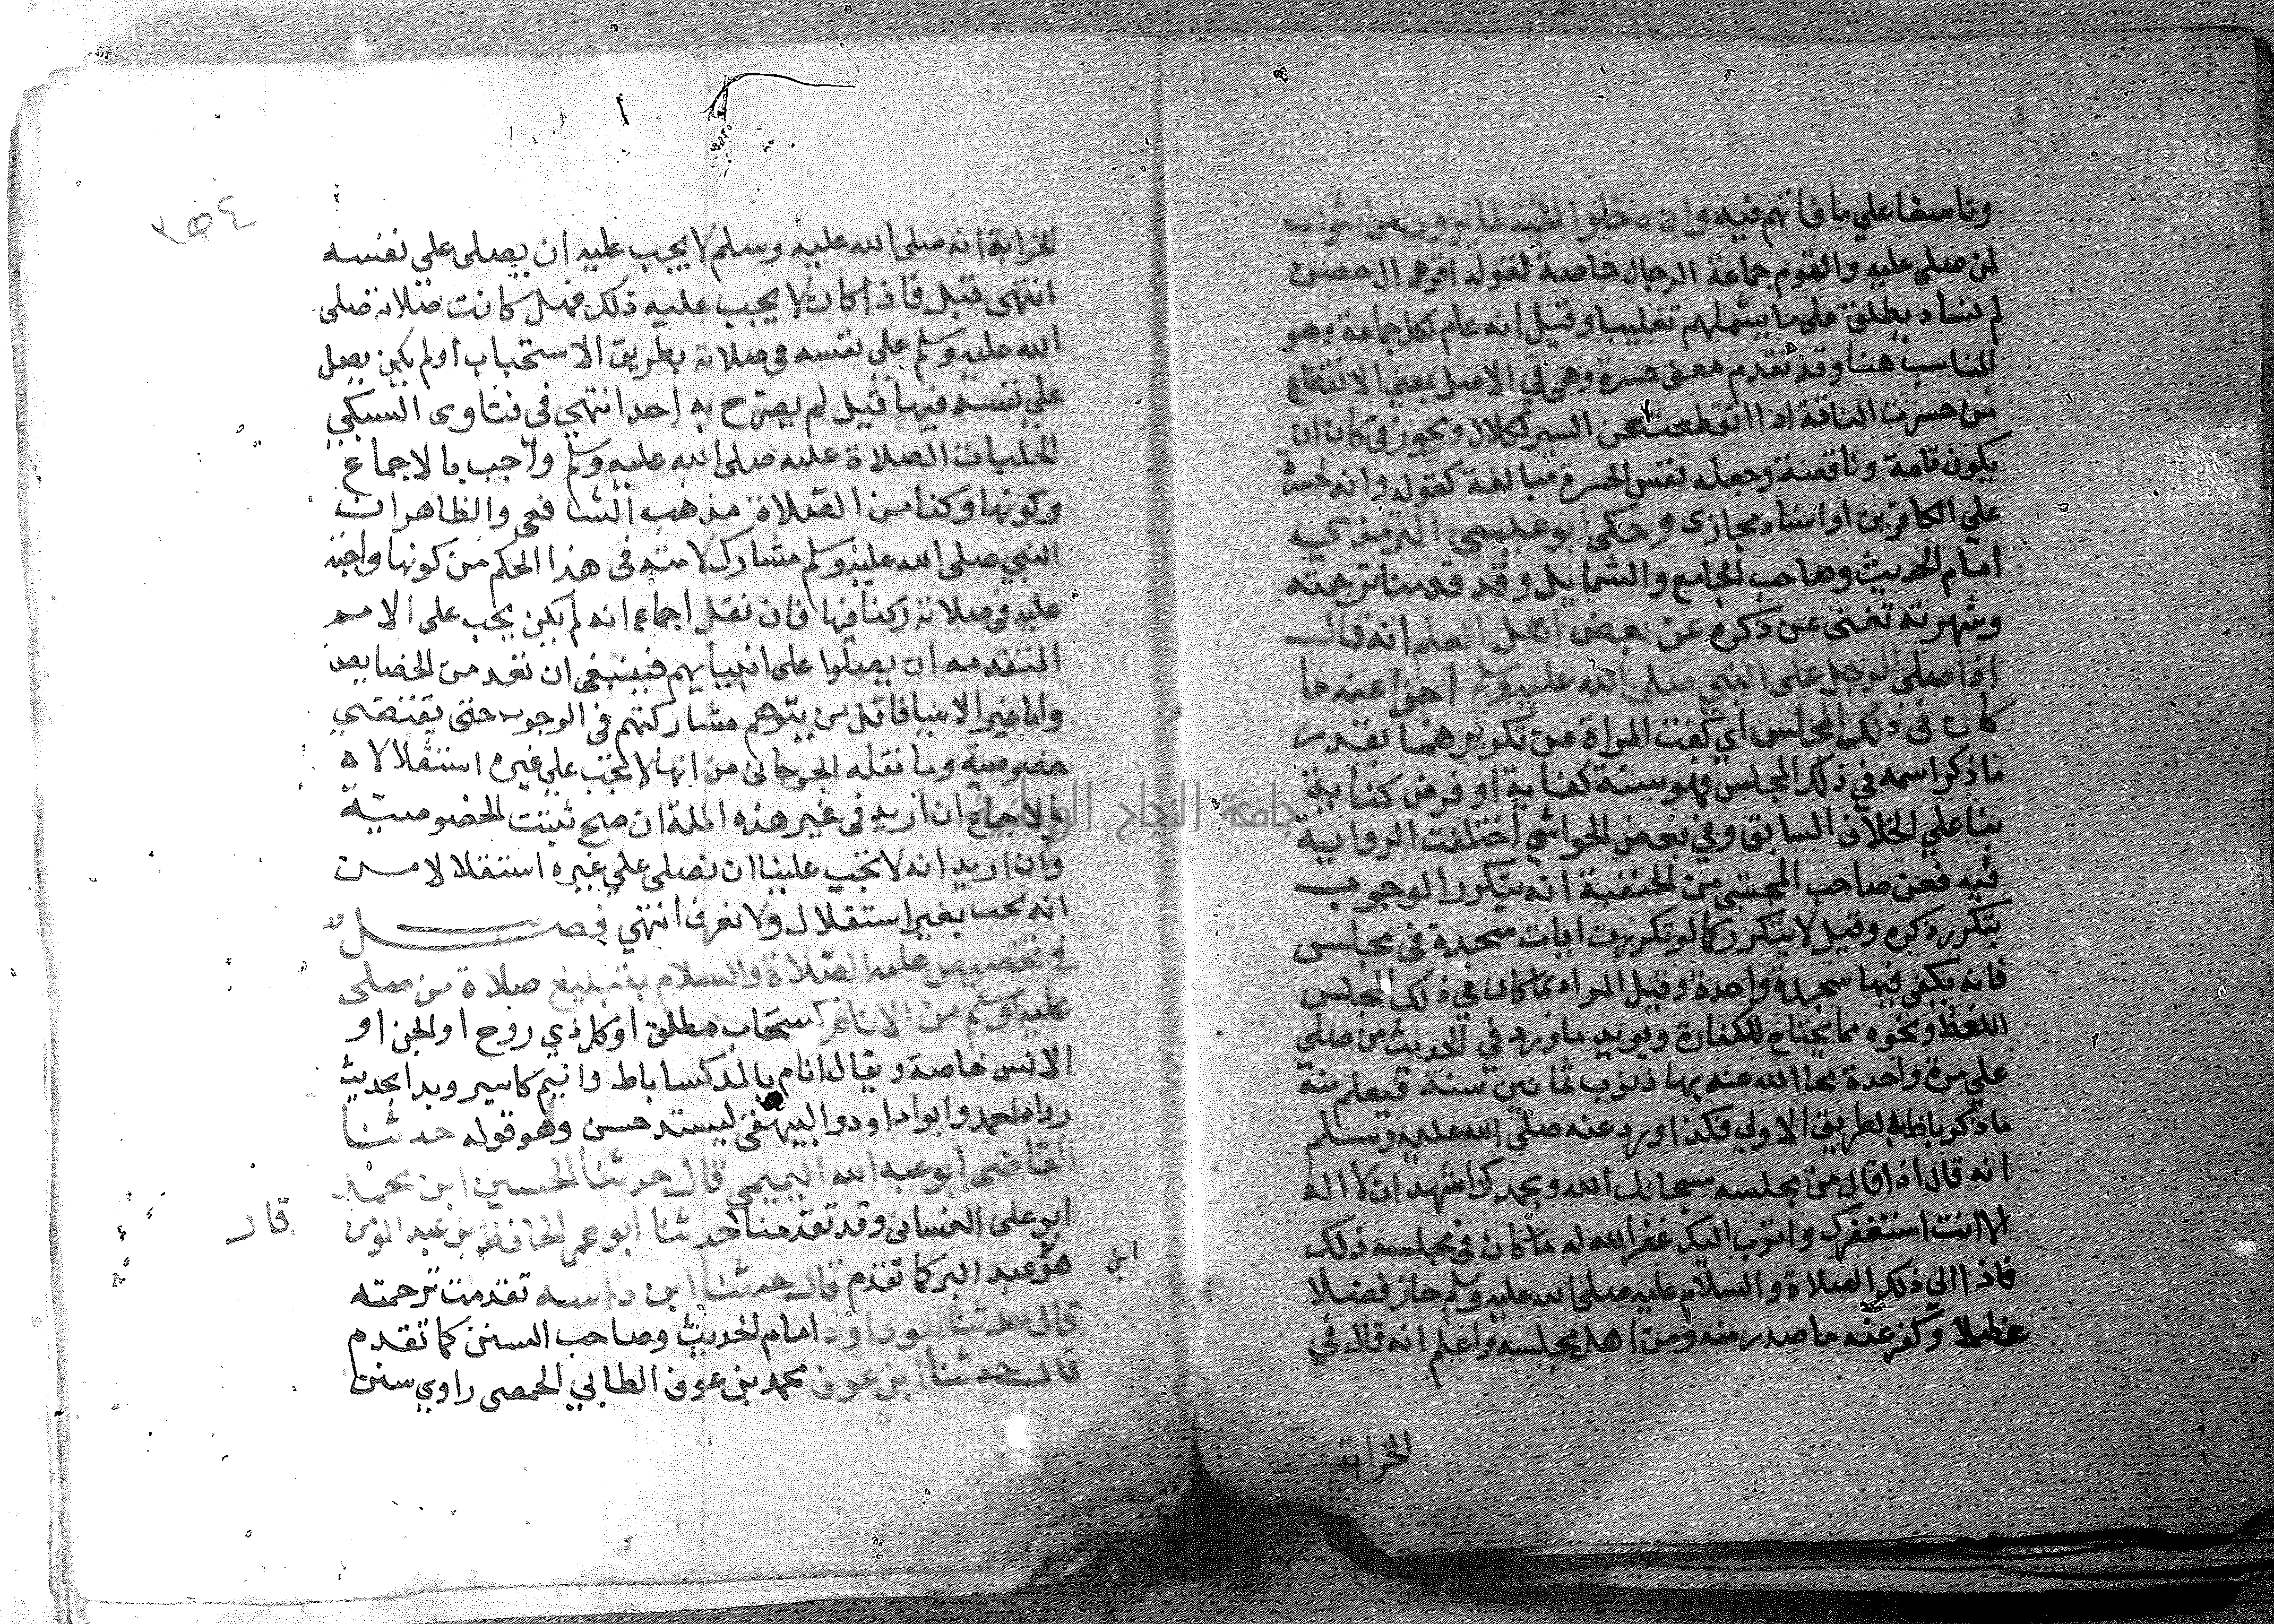 وتاسفا علي ما فاتهم فيه وان دخلوا الجنة لما يرون من الثواب
لمن صلى عليه والقوم جماعة الرجال خاصة لقوله اقوم ال حصن
ام نساء يطلق على ما يشملهم تغليبا وقيل انه عام لكل جماعة وهو
المناسب هنا وقد تقدم معنى حسرة وهي في الاصل بمعنى الانقطاع
من حسرت الناقة اذا انقطعت عن السير لكلال ويجوز في كان ان
يكون تامة وناقصة وجعله نفس الحسرة مبالغة كقوله وانه لحسرة
علي الكافرين او اسناد مجازى وحكى ابو عيسى الترمذي
امام الحديث وصاحب الجامع والشمايل وقد قدمنا ترجمته
وشهرته تغنى عن ذكره عن بعض اهل العلم انه قال
اذا صلى الرجل على النبي صلى الله عليه وسلم اجزا عنه ما
كان في ذلك المجلس اي كفت المراة عن تكريرهما بقدر
ما ذكر اسمه في ذلك المجلس فهو سنة كفاية او فرض كفاية
بنا علي الخلاف السابق وفي بعض الحواشي اختلفت الرواية
فيه فعن صاحب المجتبى من الحنفية انه يتكرر الوجوب
بتكرر ذكره وقيل لا يتكرر كما لو تكررت ايات سجدة في مجلس
فانه يكفى فيها سجدة واحدة وقيل المراد بما كان في ذلك المجلس
اللغط ونحوه مما يحتاج للكفارة ويويد ما ورد في الحديث من صلى
علي مرة واحدة محا الله عنه بها ذنوب ثمانين سنة فيعلم منه
ما ذكر بالطريق الاولي فكذا ورد عنه صلى الله عليه وسلم
انه قال اذا قال من مجلسه سبحانك الله وبحمدك اشهد ان لا اله
الا انت استغفرك واتوب اليك غفر الله له ما كان في مجلسه ذلك
فاذا الي ذلك الصلاة والسلام عليه صلى الله عليه وسلم حاز فضلا
عظيما وكفر عنه ما صدر منه ومن اهل مجلسه واعلم انه قال في
الخرابة
٣٥٤
الخرابة انه صلى الله عليه وسلم لا يجب عليه ان يصلى علي نفسه
انتهى قيل فاذا كان لا يجب عليه ذلك فهل كانت صلاته صلى
الله عليه وسلم علي نفسه في صلاته بطريق الاستحباب اولم يكن يصل
علي نفسه فيها قيل لم يصرح به احد انتهي في فتاوى السبكي
الحلبيات الصلاة عليه صلى الله عليه وسلم واجب بالاجماع
وكونها ركنا من الصلاة مذهب الشافعي والظاهر ان
النبي صلى الله عليه وسلم مشارك لامته في هذا الحكم من كونها واجبة
عليه في صلاته ركنا فيها فان نقل اجماع انه لم يكن يجب على الامم
المتقدمه ان يصلوا على انبيايهم فينبغى ان تعد من الخصايص
واما غير الانبيا فاقل من يتوهم مشاركتهم في الوجوب حتى يقتضي
خصوصية وما نقله الجرجانى من انها لا تجب علي غيره استقلالا
بالاجماع ان اريد في غير هذه الملة ان صح ثبتت الخصوصية
وان اريد انه لا تجب علينا ان نصلى علي غيره استقلالا
انه يجب بغير استقلال ولا نعرف انتهي فصل
في تخصيص عليه الصلاة والسلام بتبليغ صلاة من صلى
عليه وسلم من الانام كسحاب مطلق او كل ذي روح او الجن او
الانس خاصة ويقال انام بالمد كساباط وانيم كامير وبدا بحديث
رواه احمد وابو داود والبيهقى بسند حسن وهو قوله حدثنا
القاضى ابو عبد الله التميمي قال حدثنا الحسين ابن محمد
ابو على الغسانى وقد تقدمنا حدثنا ابو عمر الحافظ بن عبد المومن
قال
هو عبد البر كما تقدم قال حدثنا ابن داسه تقدمت ترجمته
ابن
قال حدثنا ابو داود امام الحديث وصاحب السنن كما تقدم
قال حدثنا ابن عوف محمد بن عوف الطايي الحمصى راوي سنن
جامعة النجاح الوطنية